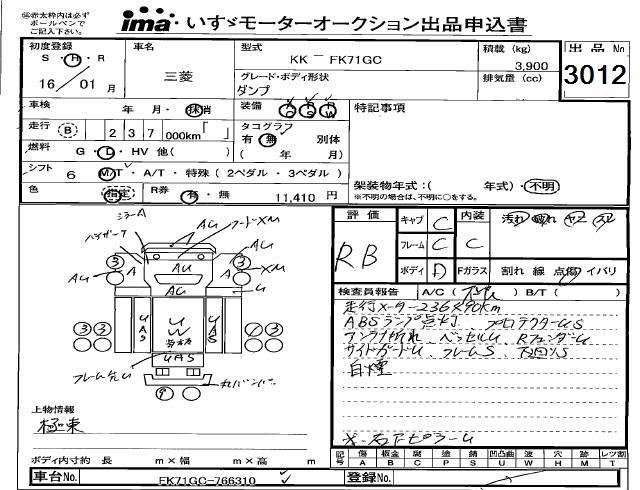 ㊟赤太枠内は必ず
ボールペンで
ご記入下さい。
ima いすゞモーターオークション出品申込書
初度登録 車名 型式 積載 (kg) 出品No
S・H・R 三菱 KK － FK71GC 3,900
16年01月 グレード・ボディ形状 排気量 (cc) 3012
ダンプ
車検 年・月・抹消 装備 特記事項
走行 B 237 000km「 」 タコグラフ
有・無 別体
燃料 G・L・HV 他( ) ( 年 月)
シフト 6 M/T・A/T・特殊 (2ペダル・3ペダル) 架装物年式：( 年式)・不明
※不明の場合は、不明に○をする。
色 指定 R券 有・無 11,410 円
評価 キャブ C 内装 汚れ 破れ
RB フレーム C C
ボディ D Fガラス 割れ 線 点傷 イバリ
検査員報告 A/C( ) B/T( )
走行メーター236890km
ABSランプ点灯、プロテクターUS
アンテナ折れ、ベッセルU、RフェンダーU
サイドガードU、フレームS、下回りS
白煙
ミラーA
AU
フードXM
AU
AU
A
A
XM
AU
AU
U
UAS
UAS
U
W
UAS
③
③
③③
③
上物情報
極東
ボディ内寸約 長 m×幅 m×高 m
記号 傷 A 板金 B 腐 C 塗 P 錆 S 凹凸曲 U 波 W 穴 H 跡 M レツ割 T
車台No. FK71GC-766310 登録No.